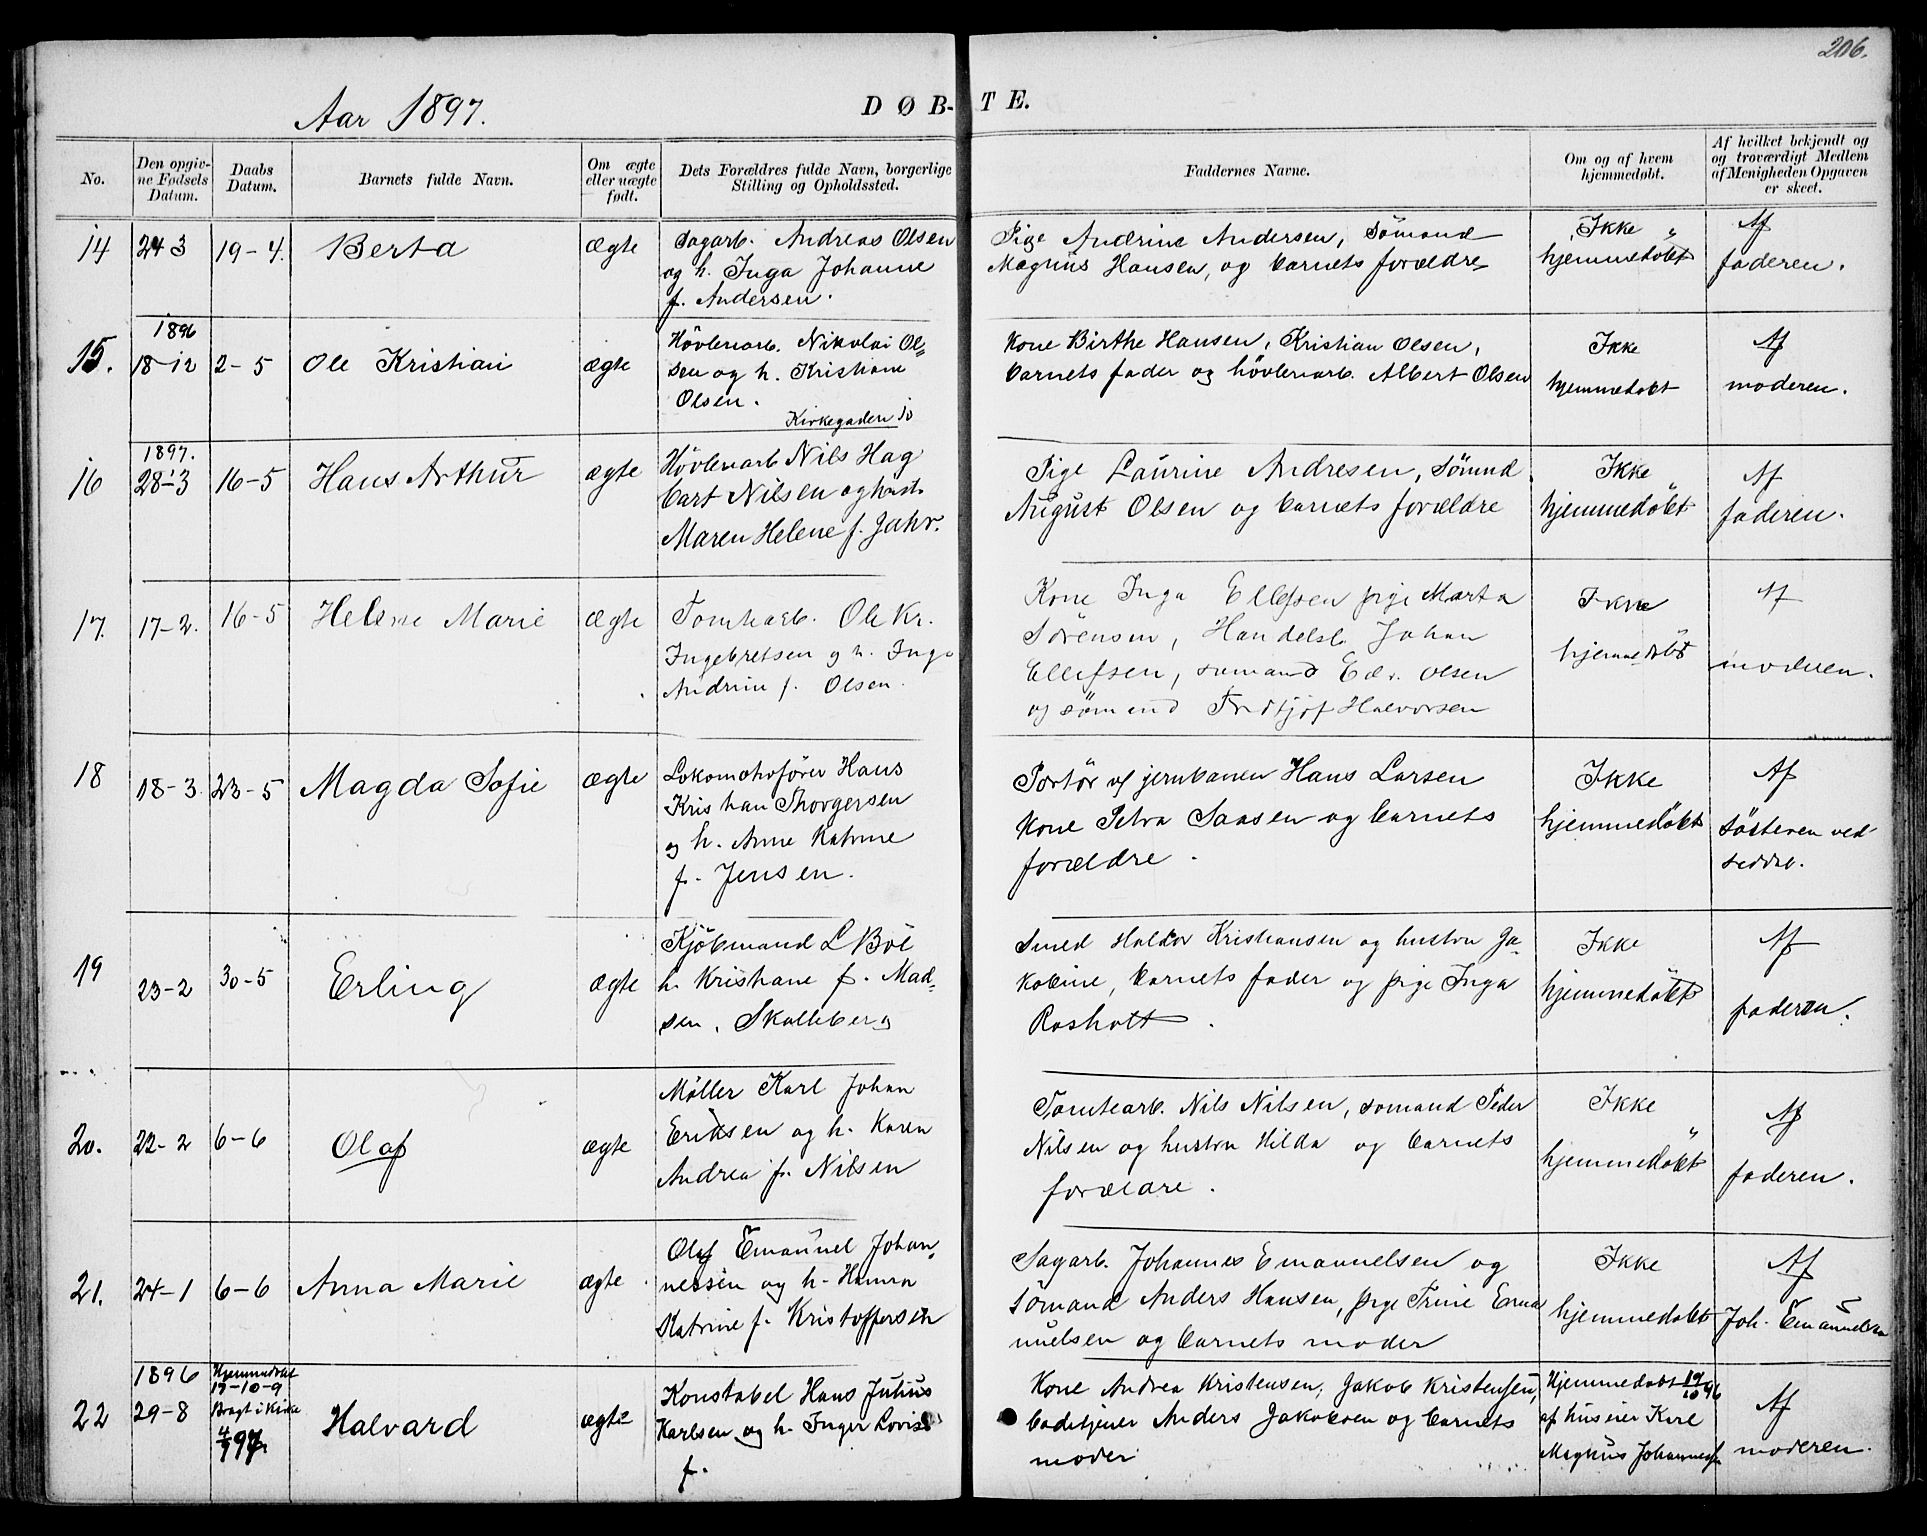 206.
Aar 1897.
DØB-TE.
No.
Den opgiv-
ne Fødsels
Datum.
Daabs
Datum.
Barnets fulde Navn.
Om ægte
eller uægte
født.
Dets Forældres fulde Navn, borgerlige
Stilling og Opholdssted.
Faddernes Navne.
Om og af hvem
hjemmedøbt.
Af hvilket bekjendt og
og troværdigt Medlem
af Menigheden Opgaven
er skeet.
14
24 3
19-4.
Berta
Ægte
Sagarb. Andreas Olsen
og h. Inga Johanne
f. Andersen.
Pige Andrine Andersen, Sömand
Magnus Hansen, og barnets forældre
Ikke
hjemmedöbt
Af
faderen.
15.
1896
18-12
2-5
Ole Kristian
ægte
Hövleriarb. Nikolai Ol-
sen og h. Kristiane
Olsen.
Kirkegaden 10
Kone Birthe Hansen, Kristian Olsen,
barnets fader og hövleriarb. Albert Olsen
Ikke
hjemmedøbt
Af
moderen.
16
1897.
28-3
16-5
Hans Arthur
ægte
Hövleriarb Nils Hag
bart Nilsen og hust.
Maren Helene f. Jahr.
Pige Laurine Andresen, Sömnd
August Olsen og barnets forældre
Ikke
hjemmedöbt
Af
faderen.
17.
17-2.
16-5
Helene Marie
Ægte
Tomtearb. Ole Kr.
Ingebretsen og h. Inga
Andrine f. Olsen.
Kone Inga Ellefsen pige Marta
Sørensen, Handelsb. Johan
Ellefsen, sømand Edv. Olsen
og sömand Fridtjof Halvorsen
Ikke
hjemmedöbt
Af
moderen.
18
18-3
23-5
Magda Sofie
Ægte
Lokomotivförer Hans
Kristian Thorgersen
og h. Anne Katrine
f. Jensen.
Portör v/ jernbanen Hans Larsen
Kone Petra Saasen og barnets
forældre.
Ikke
hjemmedöbt
Af
Søsteren ved
seddel.
19
23-2
30-5
Erling
ægte
Kjöbmand L Böe
h. Kristiane f. Mad-
sen, Skalleberg
Smed Haldor Kristiansen og hustru Ja-
kobine, barnets fader og pige Inga
Rasholt.
Ikke
hjemmedöbt
Af
faderen.
20.
22-2
6-6
Olaf
ægte
Møller Karl Johan
Eriksen og h. Karen
Andrea f. Nilsen
Tomtearb. Nils Nilsen, sømand Peder
Nilsen og hustru Hilda og barnets
forældre.
Ikke
hjemmedöbt
Af
faderen.
21.
24-1
6-6
Anna Marie
ægte.
Olaf Emanuel Johan-
nessen og h. Hanna
Katrine f. Kristoffersen
Sagarb. Johannes Emanuelsen og
sömand Anders Hansen, pige Trine Ema
nuelsen og barnets moder
Ikke
hjemmedøbt
Af
Joh. Emanuelsen
22
1896
29-8
Hjemmedøbt
19-10-9
Bragt i Kirke
Halvard
ægte
Konstabel Hans Julius
Karlsen og h. Inger Lovise
f.
Kone Andrea Kristensen, Jakob Kristensen,
badetjener Anders Jakobsen og barnets
moder
Hjemmedøbt 19/10 96
af huseier Karl
Magnus Johannessen
Af
moderen.